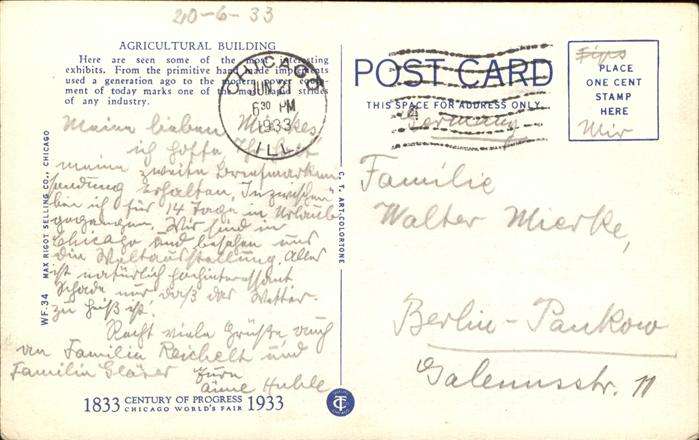 20-6-33
AGRICULTURAL BUILDING
Here are seen some of the most interesting
exhibits. From the primitive hand made implements
used a generation ago to the modern power equip-
ment of today marks one of the most rapid strides
of any industry.
CHICAGO
JUN 21
6 30 PM
1933
ILL.
POST CARD
THIS SPACE FOR ADDRESS ONLY
Germany
PLACE
ONE CENT
STAMP
HERE
Meine lieben Mierkes,
ich hoffe Ihr habt
meine zweite Briefmarken
sendung erhalten. Inzwischen
bin ich für 14 Tage in Urlaub
gegangen. Wir sind in
Chicago und besehen uns
die Weltausstellung. Alles
ist natürlich hochinteressant
Schade nur daß das Wetter
zu heiß ist.
Recht viele Grüße, auch
an Familie Reichelt und
Familie Gläser
Familie
Walter Mierke,
Berlin-Pankow
Galenusstr. 11
WF.34 MAX RIGOT SELLING CO., CHICAGO
C. T. ART-COLORTONE
1833 CENTURY OF PROGRESS 1933
CHICAGO WORLD'S FAIR